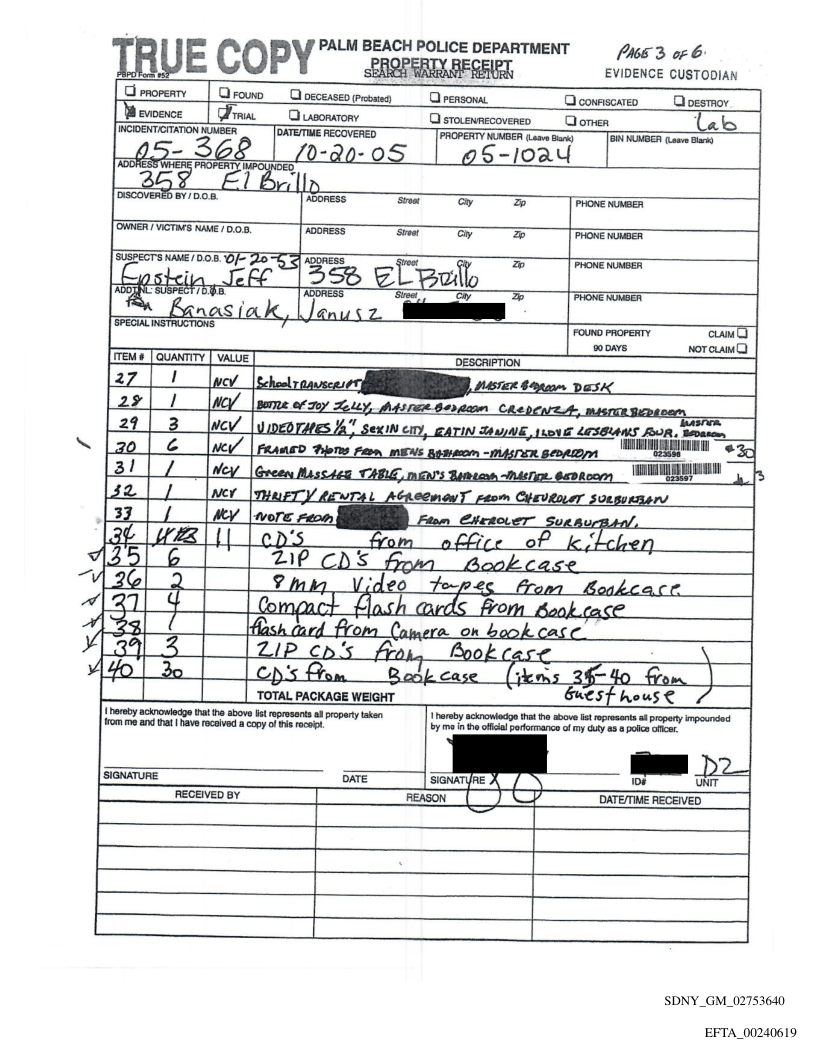 TRUE COPY PALM BEACH POLICE DEPARTMENT PAGE 3 OF 6
PBPD Form #52 PROPERTY RECEIPT
SEARCH WARRANT RETURN EVIDENCE CUSTODIAN
PROPERTY FOUND DECEASED (Probated) PERSONAL CONFISCATED DESTROY
EVIDENCE TRIAL LABORATORY STOLEN/RECOVERED OTHER Lab
INCIDENT/CITATION NUMBER DATE/TIME RECOVERED PROPERTY NUMBER (Leave Blank) BIN NUMBER (Leave Blank)
05-368 10-20-05 05-1024
ADDRESS WHERE PROPERTY IMPOUNDED
358 El Brillo
DISCOVERED BY / D.O.B. ADDRESS Street City Zip PHONE NUMBER
OWNER / VICTIM'S NAME / D.O.B. ADDRESS Street City Zip PHONE NUMBER
SUSPECT'S NAME / D.O.B. 01-20-53 ADDRESS Street City Zip PHONE NUMBER
Epstein Jeff 358 EL Brillo
ADDTNL: SUSPECT / D.O.B. ADDRESS Street City Zip PHONE NUMBER
Banasiak, Janusz
SPECIAL INSTRUCTIONS
FOUND PROPERTY CLAIM
90 DAYS NOT CLAIM
ITEM # QUANTITY VALUE DESCRIPTION
27 1 NCV School TRANSCRIPT, , MASTER BEDROOM DESK
28 1 NCV BOTTLE OF JOY JELLY, MASTER BEDROOM CREDENZA, MASTER BEDROOM
29 3 NCV VIDEOTAPES 1/2", SEX IN CITY, EATIN JANINE, I LOVE LESBIANS FOUR, MASTER BEDROOM
30 6 NCV FRAMED PHOTOS FROM MENS BATHROOM-MASTER BEDROOM 023598 #30
31 1 NCV GREEN MASSAGE TABLE, MEN'S BATHROOM-MASTER BEDROOM 023597
32 1 NCV THRIFTY RENTAL AGREEMENT FROM CHEVROLET SURBURBAN
33 1 NCV NOTE FROM FROM CHEROLET SURBURBAN.
34 11 CD's from office of kitchen
35 6 ZIP CD's from Bookcase
36 2 8mm Video tapes from Bookcase
37 4 Compact flash cards from Bookcase
38 1 flash card from Camera on bookcase
39 3 ZIP CD's from Bookcase
40 30 CD's from Bookcase (items 35-40 from Guesthouse)
TOTAL PACKAGE WEIGHT
I hereby acknowledge that the above list represents all property taken from me and that I have received a copy of this receipt.
I hereby acknowledge that the above list represents all property impounded by me in the official performance of my duty as a police officer.
D2
SIGNATURE DATE SIGNATURE ID# UNIT
RECEIVED BY REASON DATE/TIME RECEIVED
SDNY_GM_02753640
EFTA_00240619